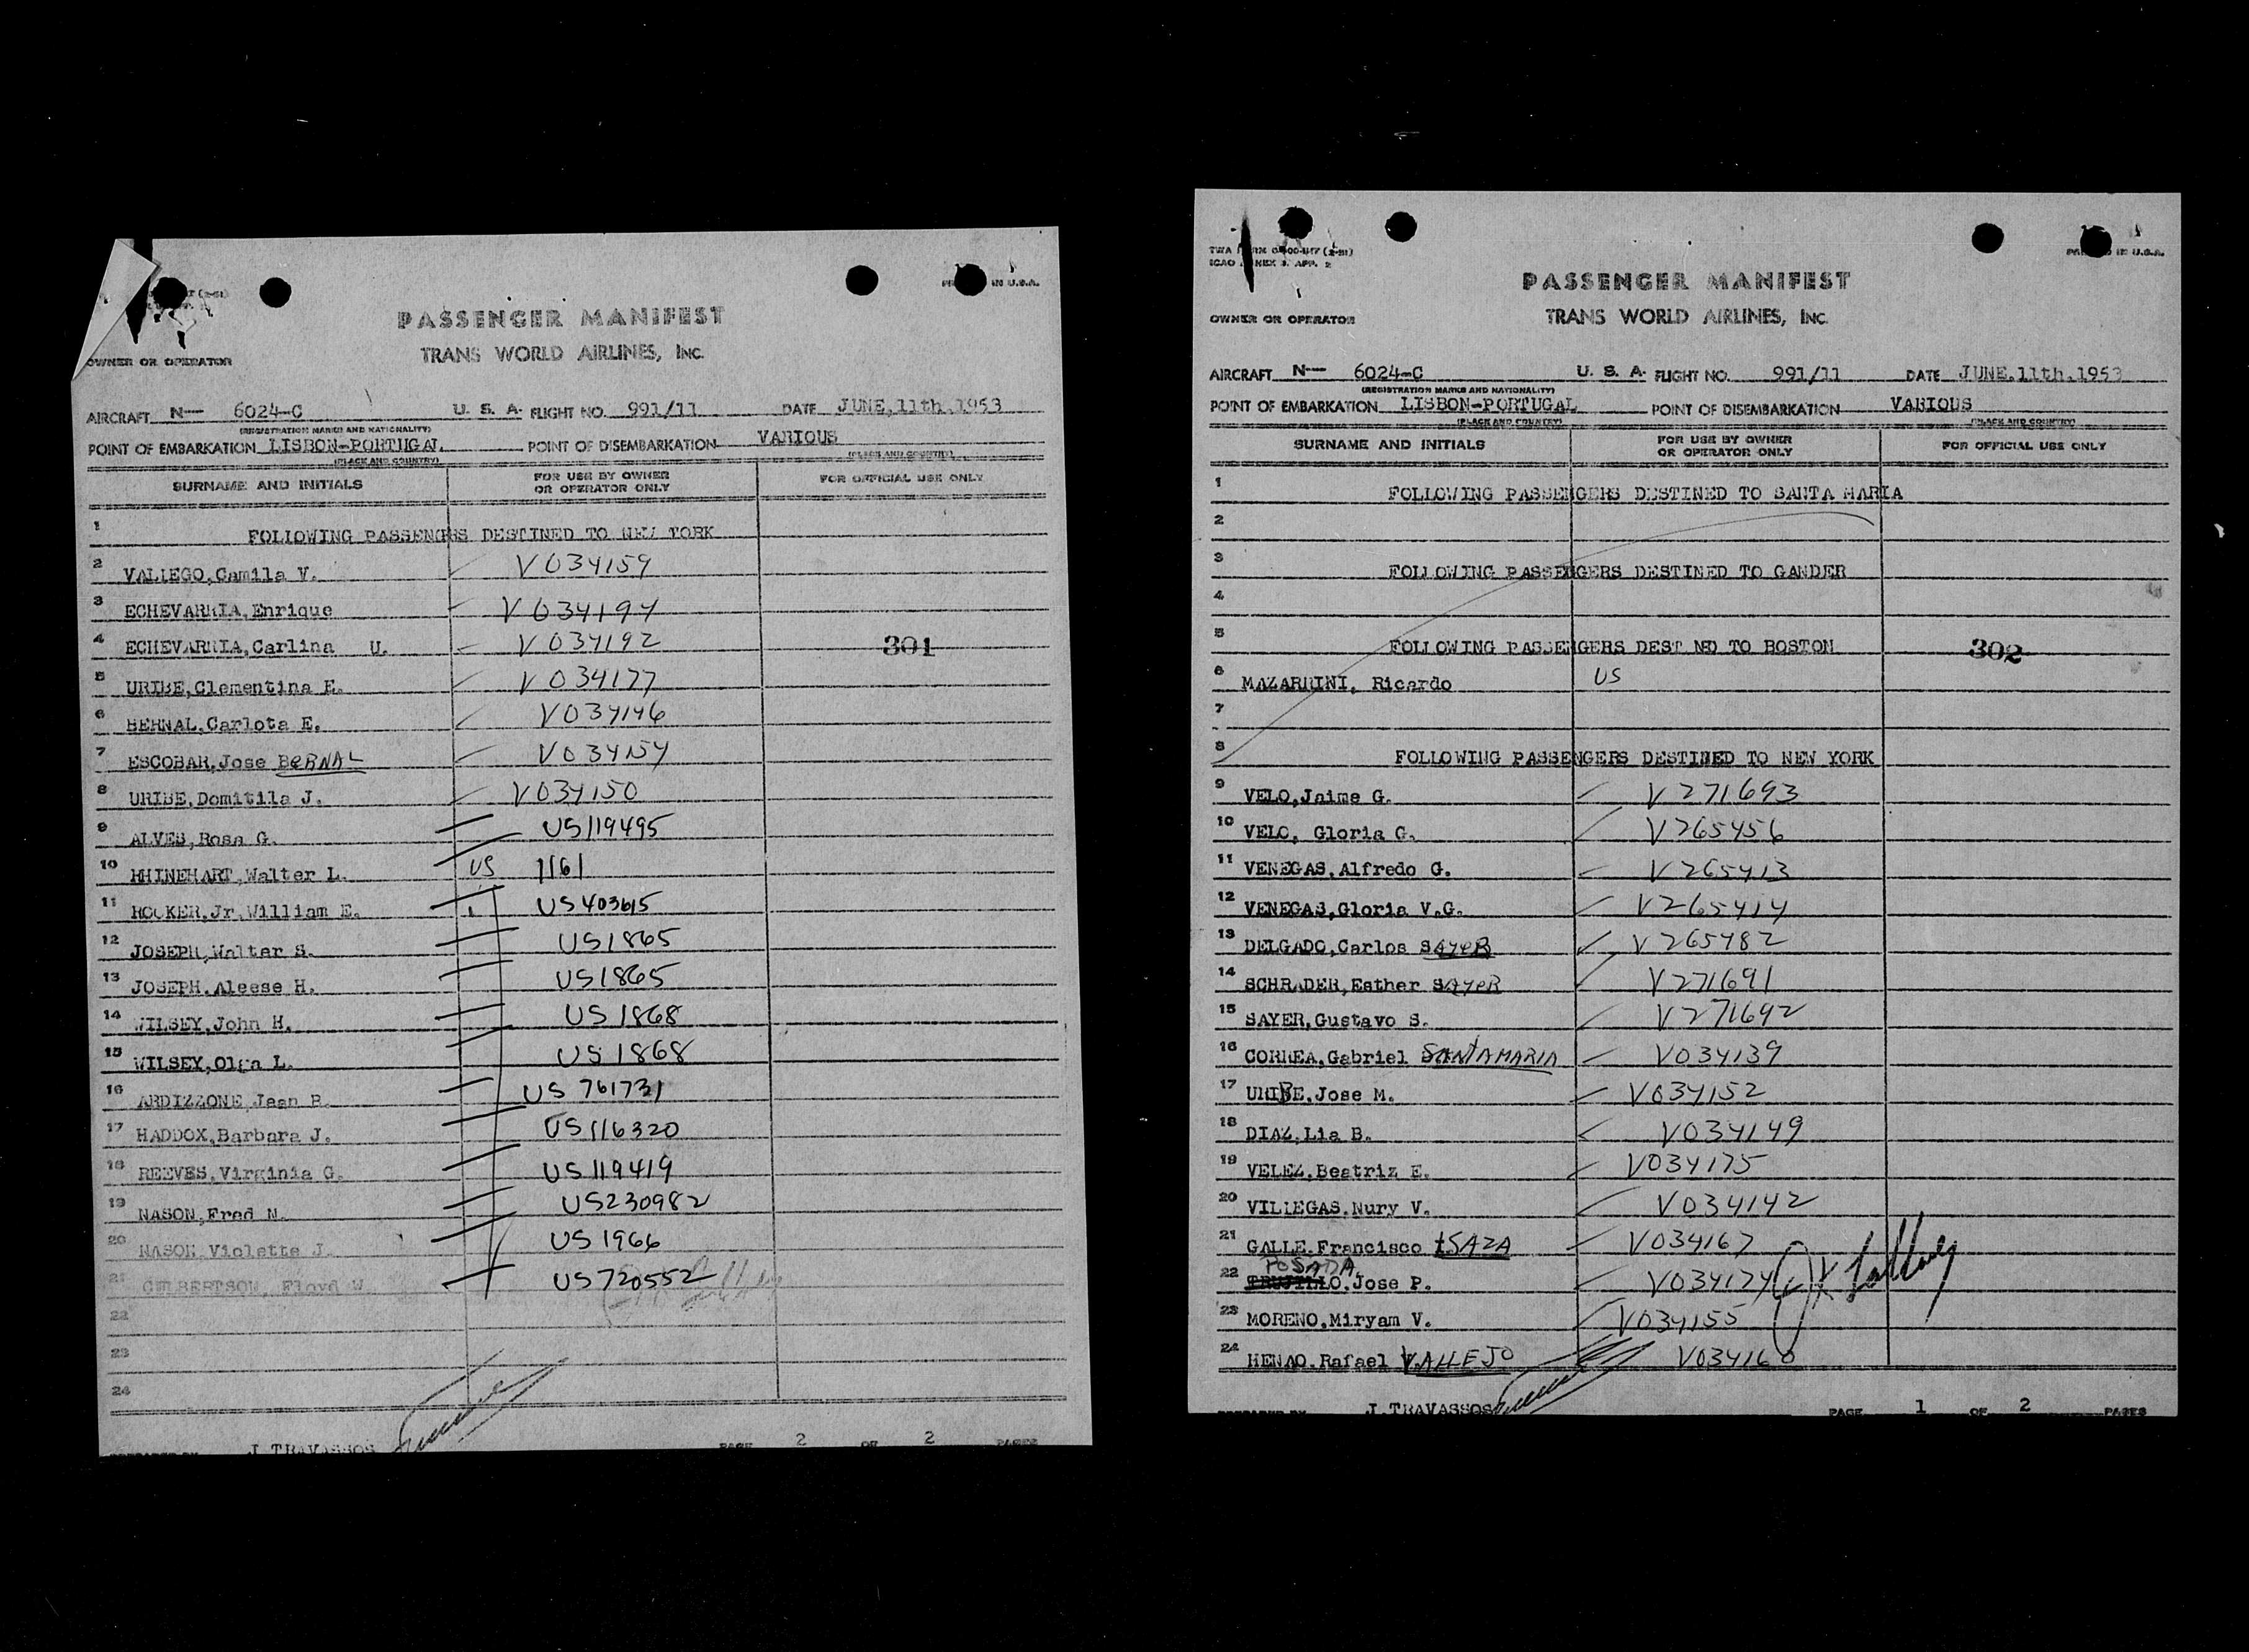 IN U.S.A.
PASSENGER MANIFEST
TRANS WORLD AIRLINES, INC.
OWNER OR OPERATOR
AIRCRAFT N— 6024-C U. S. A. FLIGHT NO. 991/11 DATE JUNE,11th.1953
(REGISTRATION MARKS AND NATIONALITY)
POINT OF EMBARKATION LISBON-PORTUGAL POINT OF DISEMBARKATION VARIOUS
(PLACE AND COUNTRY) (PLACE AND COUNTRY)
SURNAME AND INITIALS FOR USE BY OWNER OR OPERATOR ONLY FOR OFFICIAL USE ONLY
1 FOLLOWING PASSENGERS DESTINED TO NEW YORK
2 VALLEGO,Camila V. V034159
3 ECHEVARRIA,Enrique V034194
4 ECHEVARRIA,Carlina U. V034192 301
5 URIBE,Clementina E. V034177
6 BERNAL,Carlota E. V034146
7 ESCOBAR,Jose BERNAL V034154
8 URIBE,Domitila J. V034150
9 ALVES,Rosa G. US119495
10 RHINEHART,Walter L. US 1161
11 HOOKER,Jr.William E. US403615
12 JOSEPH,Walter S. US1865
13 JOSEPH.Aleese H. US1865
14 WILSEY,John H. US1868
15 WILSEY,Olga L. US1868
16 ARDIZZONE,Jean B. US 761731
17 HADDOX,Barbara J. US116320
18 REEVES,Virginia G. US119419
19 NASON,Fred N. US230982
20 NASON,Violette J. US1966
21 CULBERTSON, Floyd W. US720552
22
23
24
J.TRAVASSOS PAGE 2 OF 2 PAGES
ICAO ANNEX 9. APP. 2 IN U.S.A.
PASSENGER MANIFEST
OWNER OR OPERATOR TRANS WORLD AIRLINES, INC.
AIRCRAFT N— 6024-C U. S. A. FLIGHT NO. 991/11 DATE JUNE.11th.1953
(REGISTRATION MARKS AND NATIONALITY)
POINT OF EMBARKATION LISBON-PORTUGAL POINT OF DISEMBARKATION VARIOUS
(PLACE AND COUNTRY) (PLACE AND COUNTRY)
SURNAME AND INITIALS FOR USE BY OWNER OR OPERATOR ONLY FOR OFFICIAL USE ONLY
1 FOLLOWING PASSENGERS DESTINED TO SANTA MARIA
2
3 FOLLOWING PASSENGERS DESTINED TO GANDER
4
5 FOLLOWING PASSENGERS DESTINED TO BOSTON 302
6 MAZARRINI, Ricardo US
7
8 FOLLOWING PASSENGERS DESTINED TO NEW YORK
9 VELO,Jaime G. V271693
10 VELO, Gloria G. V265456
11 VENEGAS,Alfredo G. V265413
12 VENEGAS,Gloria V.G. V265414
13 DELGADO,Carlos SAYER V265482
14 SCHRADER,Esther SAYER V271691
15 SAYER,Gustavo S. V271692
16 CORREA,Gabriel SANTAMARIA V034139
17 URIBE,Jose M. V034152
18 DIAZ,Lia B. V034149
19 VELEZ,Beatriz E. V034175
20 VILLEGAS,Nury V. V034142
21 GALLE.Francisco ISAZA V034167
POSADA
22 TRUJILLO,Jose P. V034174
23 MORENO,Miryam V. V034155
24 HENAO.Rafael VALLEJO V034160
J.TRAVASSOS PAGE 1 OF 2 PAGES